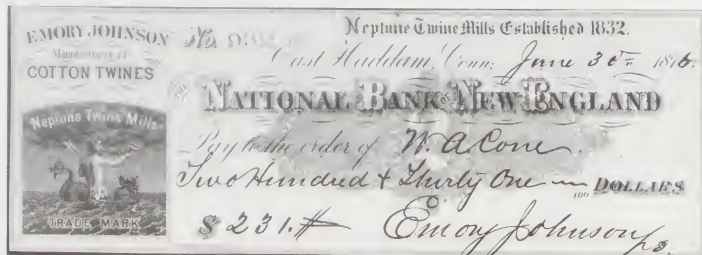 EMORY JOHNSON
Manufacturer of
COTTON TWINES
Neptune Twine Mills
TRADE MARK
Neptune Twine Mills Established 1832.
No.
East Haddam, Conn. June 30th 1876.
THE NATIONAL BANK OF NEW ENGLAND
Pay to the order of W. A. Cone.
Two Hundred & Thirty One — 100 DOLLARS
$ 231.#
Emory Johnson